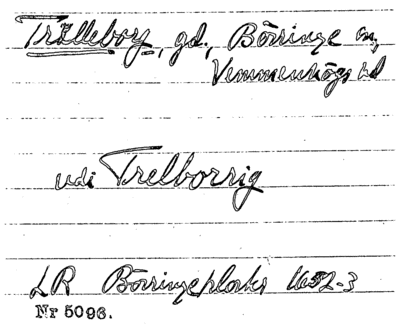 Trälleborg, gd., Börringe sn,
Vemmenhögs hd
udi Trelborrig
LR Börringekloster 1652-3
Nr 5096.